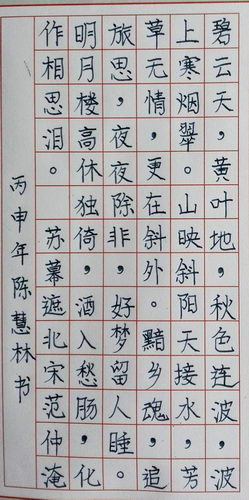 碧云天，黄叶地，秋色连波，波
上寒烟翠。山映斜阳天接水，芳
草无情，更在斜外。黯乡魂，追
旅思，夜夜除非，好梦留人睡。
明月楼高休独倚，酒入愁肠，化
作相思泪。 苏幕遮北宋范仲淹
丙申年陈慧林书